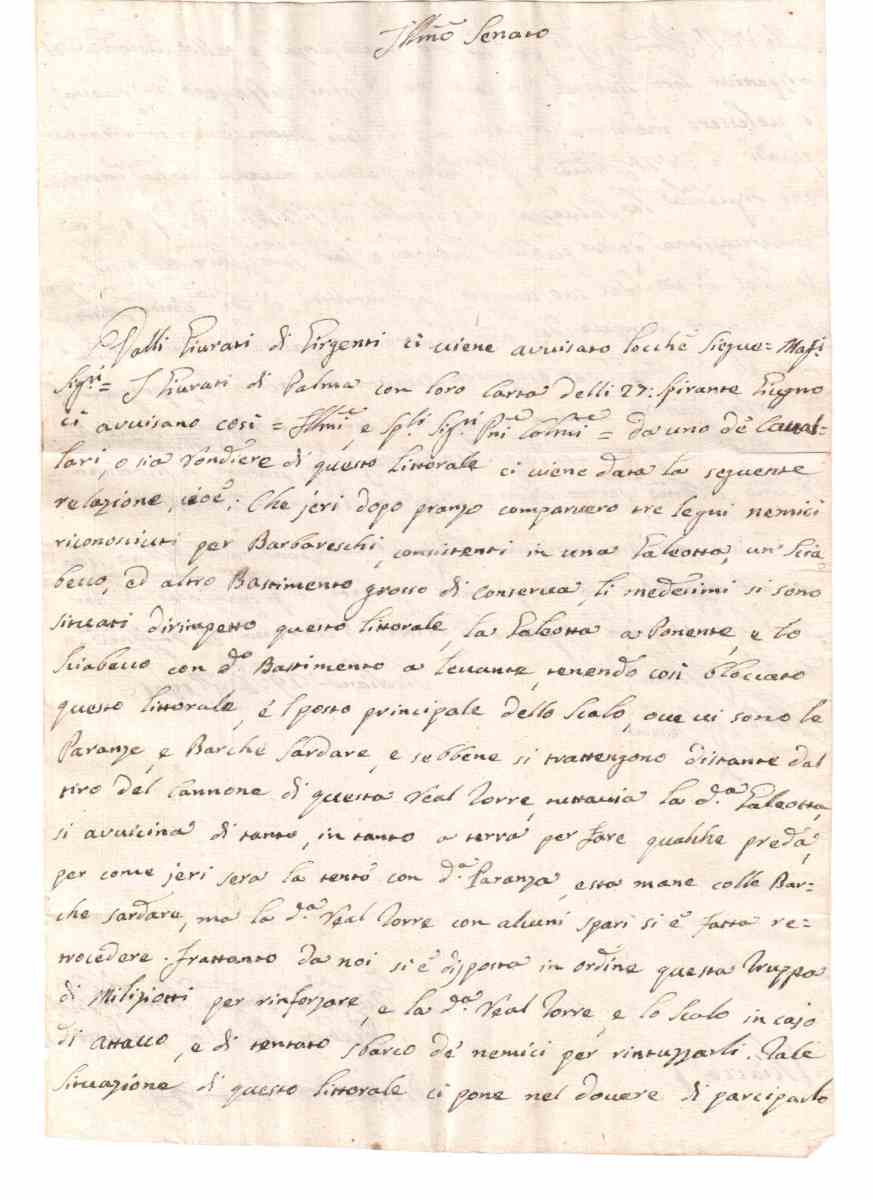 Illmo Senato
Dalli Giurati di Girgenti ci viene avvisato locchè siegue = Magci
Sigri = I Giurati di Palma con loro Carta delli 27: spirante Giugno
ci avvisano così = Illmi, e Spli Sigri Pni Colmi = da uno de' Caval=
lari, o sia Rondiere di questo littorale ci viene data la seguente
relazione, cioè; Che jeri dopo pranzo comparvero tre legni nemici
riconosciuti per Barbareschi, consistenti in una Galeotta, un' Scia
becco, ed altro Bastimento grosso di conserva, li medesimi si sono
situati dirimpetto questo littorale, la Galeotta a Ponente, e lo
Sciabecco con do. Bastimento a levante, tenendo così bloccato
questo littorale, é l posto principale dello Scalo, ove vi sono le
Paranze, e Barche Sardare, e sebbene si trattengono distante dal
tiro del Cannone di questa Real Torre, tuttavia la da. Galeotta,
si avvicina di tanto, in tanto a terra per fare qualche preda,
per come jeri sera la tentò con da. Paranza, e sta mane colle Bar=
che sardare, ma la da. Real Torre con alcuni spari si è fatta re=
trocedere. Frattanto da noi si è disposta in ordine questa Truppa
di Miliziotti per rinforzare, e la da. Real Torre, e lo Scalo in caso
di attacco, e di tentato sbarco de' nemici per rintuzzarli. Tale
Situazione di questo littorale ci pone nel dovere di parciparlo